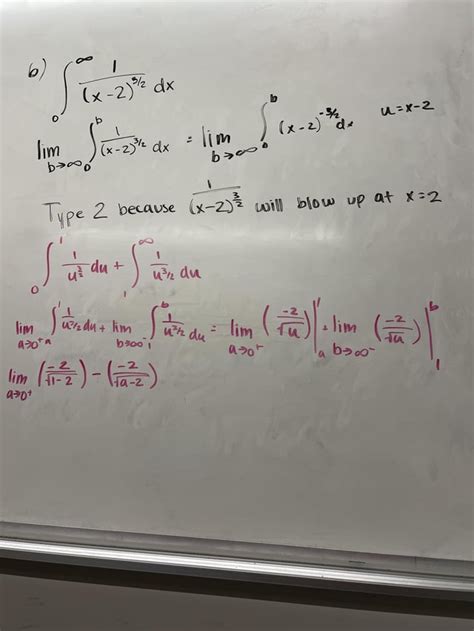 b) ∫₀^∞ 1/(x-2)^{3/2} dx
lim b→∞ ∫₀^b 1/(x-2)^{3/2} dx = lim b→∞ ∫₀^b (x-2)^{-3/2} dx u=x-2
Type 2 because 1/(x-2)^{3/2} will blow up at x=2
∫₀^1 1/u^{3/2} du + ∫₁^∞ 1/u^{3/2} du
lim a→0⁺ ∫ₐ^1 1/u^{3/2} du + lim b→∞⁻ ∫₁^b 1/u^{3/2} du = lim a→0⁺ (-2/√u)|ₐ^1 + lim b→∞⁻ (-2/√u)|₁^b
lim a→0⁺ (-2/√1-2) - (-2/√a-2)